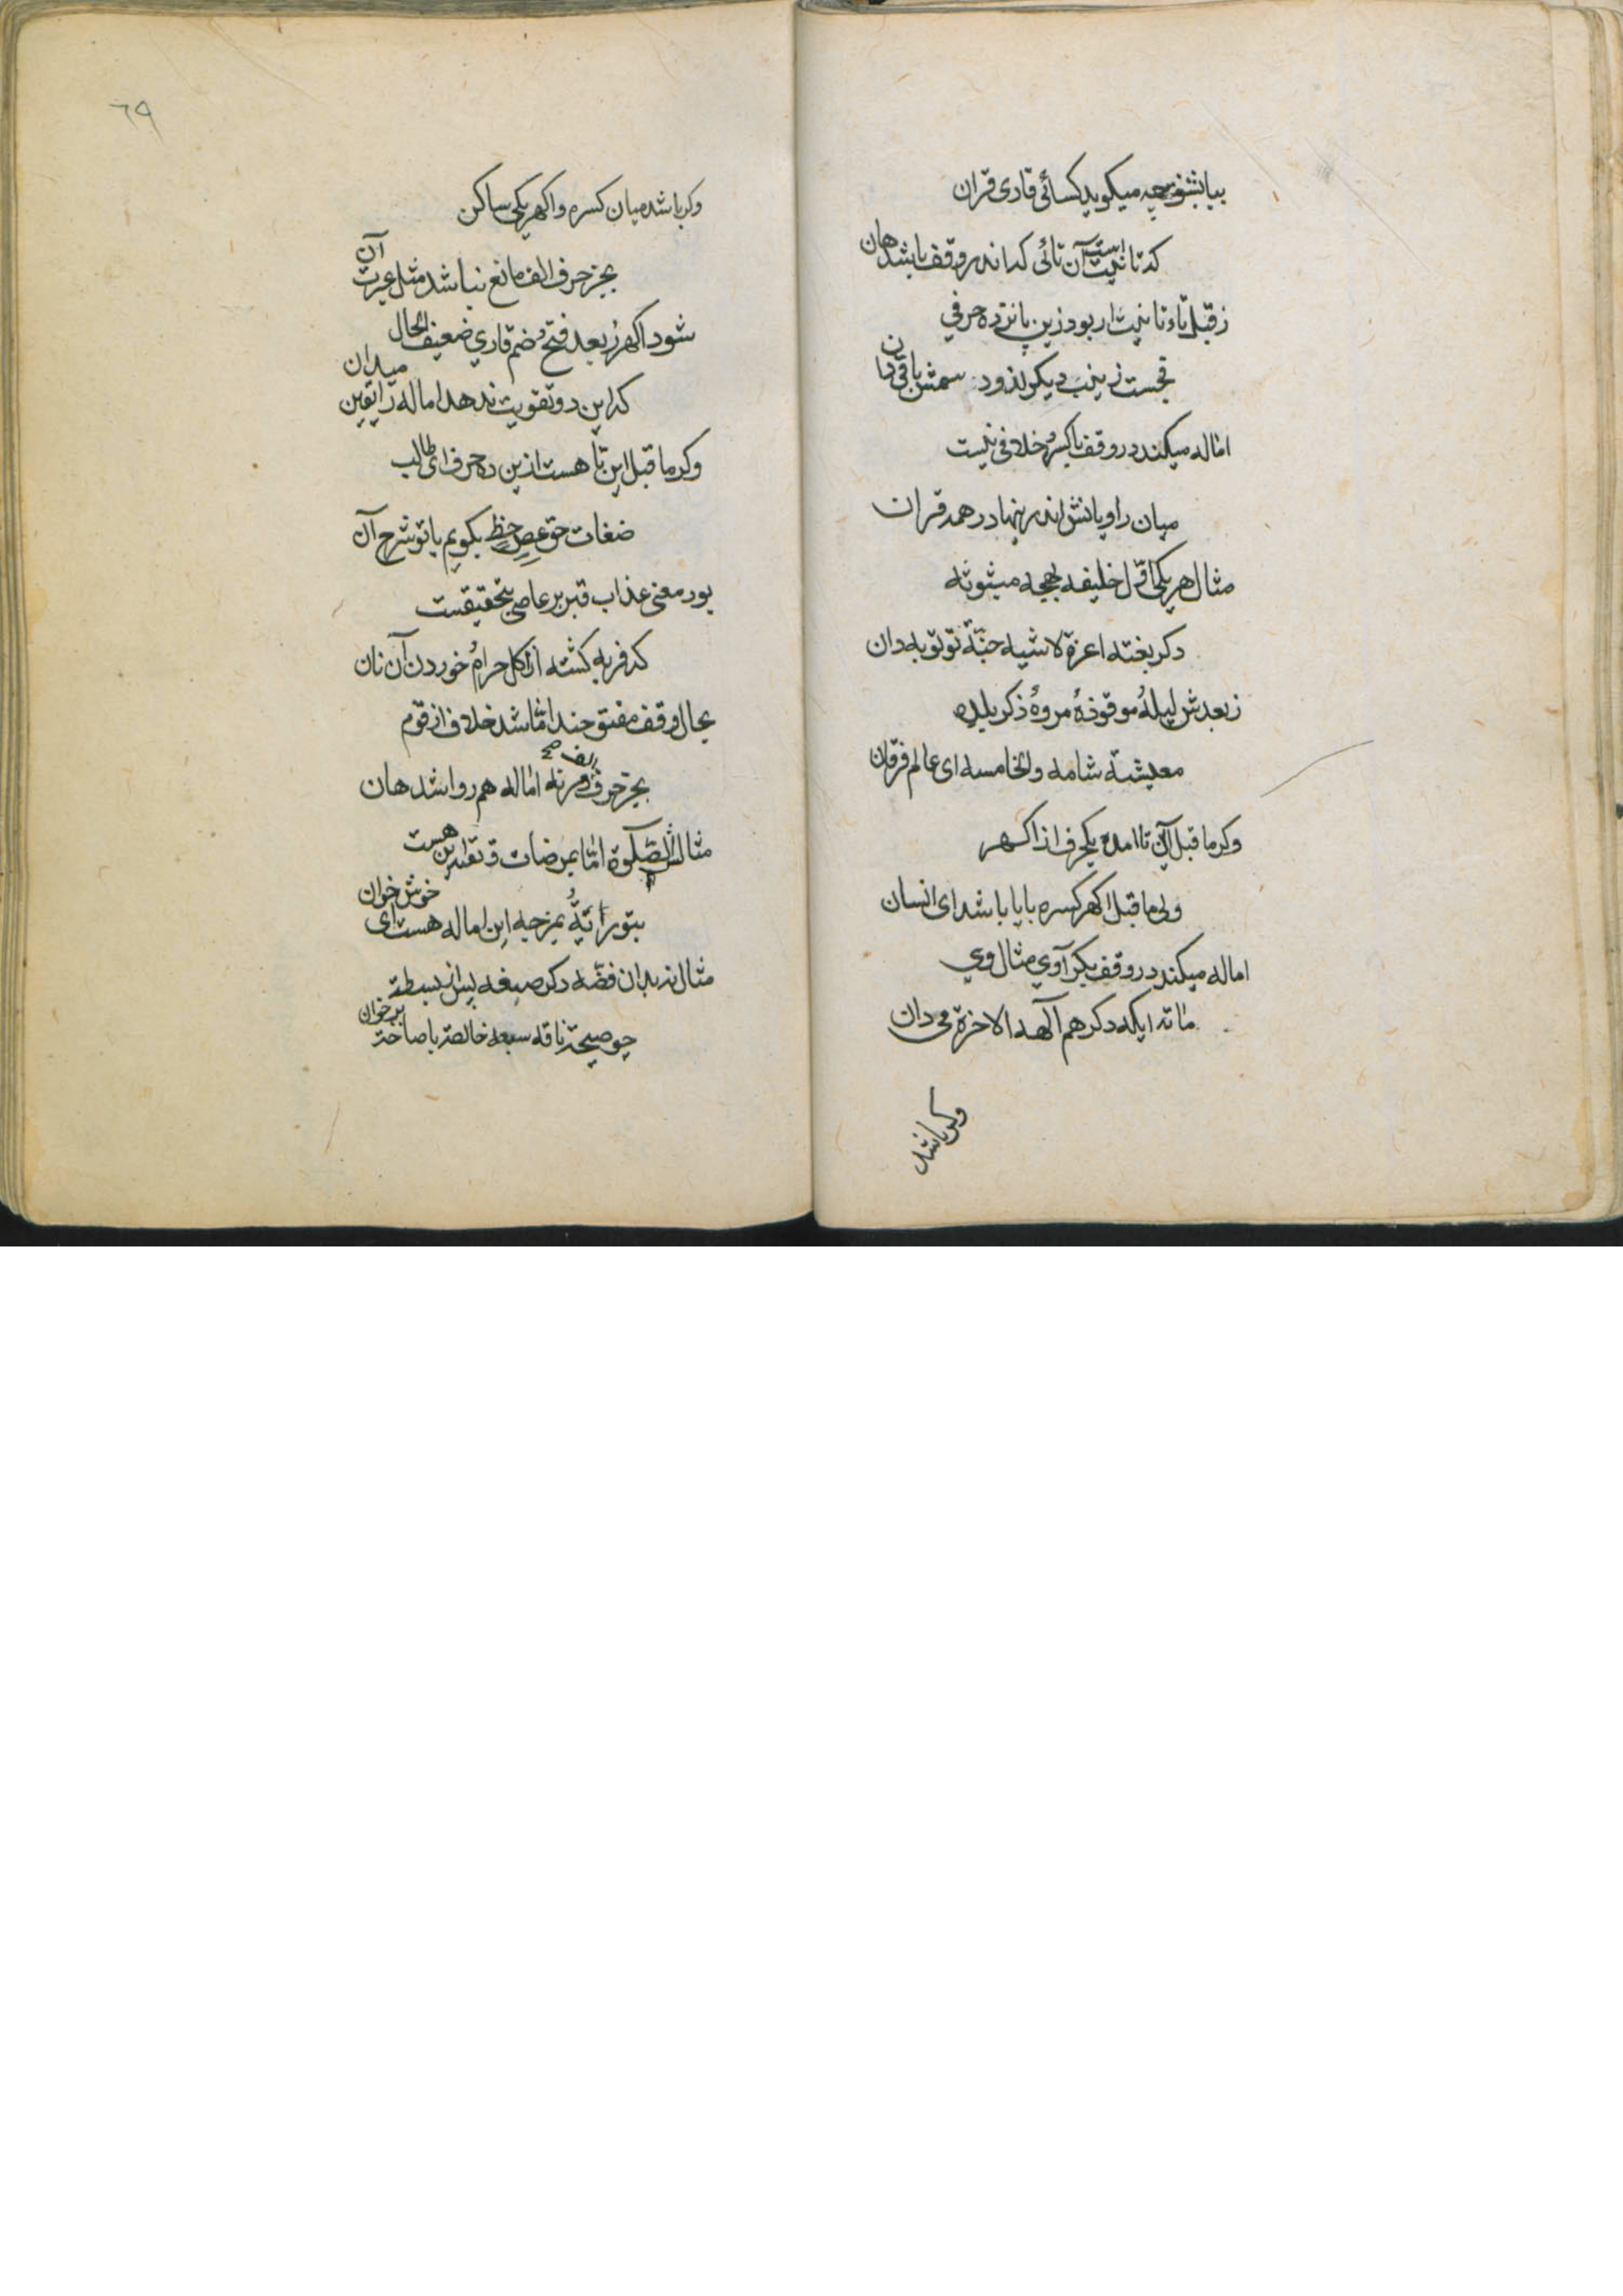 بیا بشنو چه میکوید کسائی قاری قران
که تانیث است آن تائی که اندر وقف باشد هان
ز قبل تاء تانیث ار بود زین پانزده حرفی
فجست زینب دیکر لذود شمش باقی دان
اماله میکند در وقف باکسر خلافی نیست
میان راویانش اندر ینها در همه قران
مثال هر یکی اول خلیفه بهجه مبثوثه
دکر بغته اعزة لاشیه جنّة تو توبه دان
ز بعدش لیلة موقوذة مروة ذکر بلده
معیشة شامه والخامسه ای عالم فرقان
وکر ما قبل آن تا امد یکحرف از اکهر
ولی ما قبل اکهر کسره یا یا باشد ای انسان
اماله میکند در وقف بکر آوی مثال وی
مائه ایکه دکر هم آلهه الاخرة می دان
وکر باشد
٦٩
وکر باشد میان کسره و اکهر یکی ساکن
بجز حرف الف مانع نباشد مثل عبرت آن
شود اکهر ز بعد فتح و ضم قاری ضعیف الحال
که این دو تقویت ندهد اماله را یقین میدان
وکر ما قبل این تا هست ازین ده حرف ای طالب
ضغات حق عص خظ بکویم با تو شرح آن
بود معنی عذاب قبر بر عاصی بتحقیقست
که فربه کشته از اکل حرام خوردن آن نان
بحال وقف مفتوحند اما شد خلاف از قوم
بجز حرف الف در نه اماله هم روا شد هان
مثالش الصلوة اما بمرضات و تقاة این هست
بتوراتة بمزجیه این اماله هست ای خوش خوان
مثال نه بدان فضّه دکر صبغه پس از بسطة
چو صیحة ناقه سبعه خالصة با صاخة بر خوان